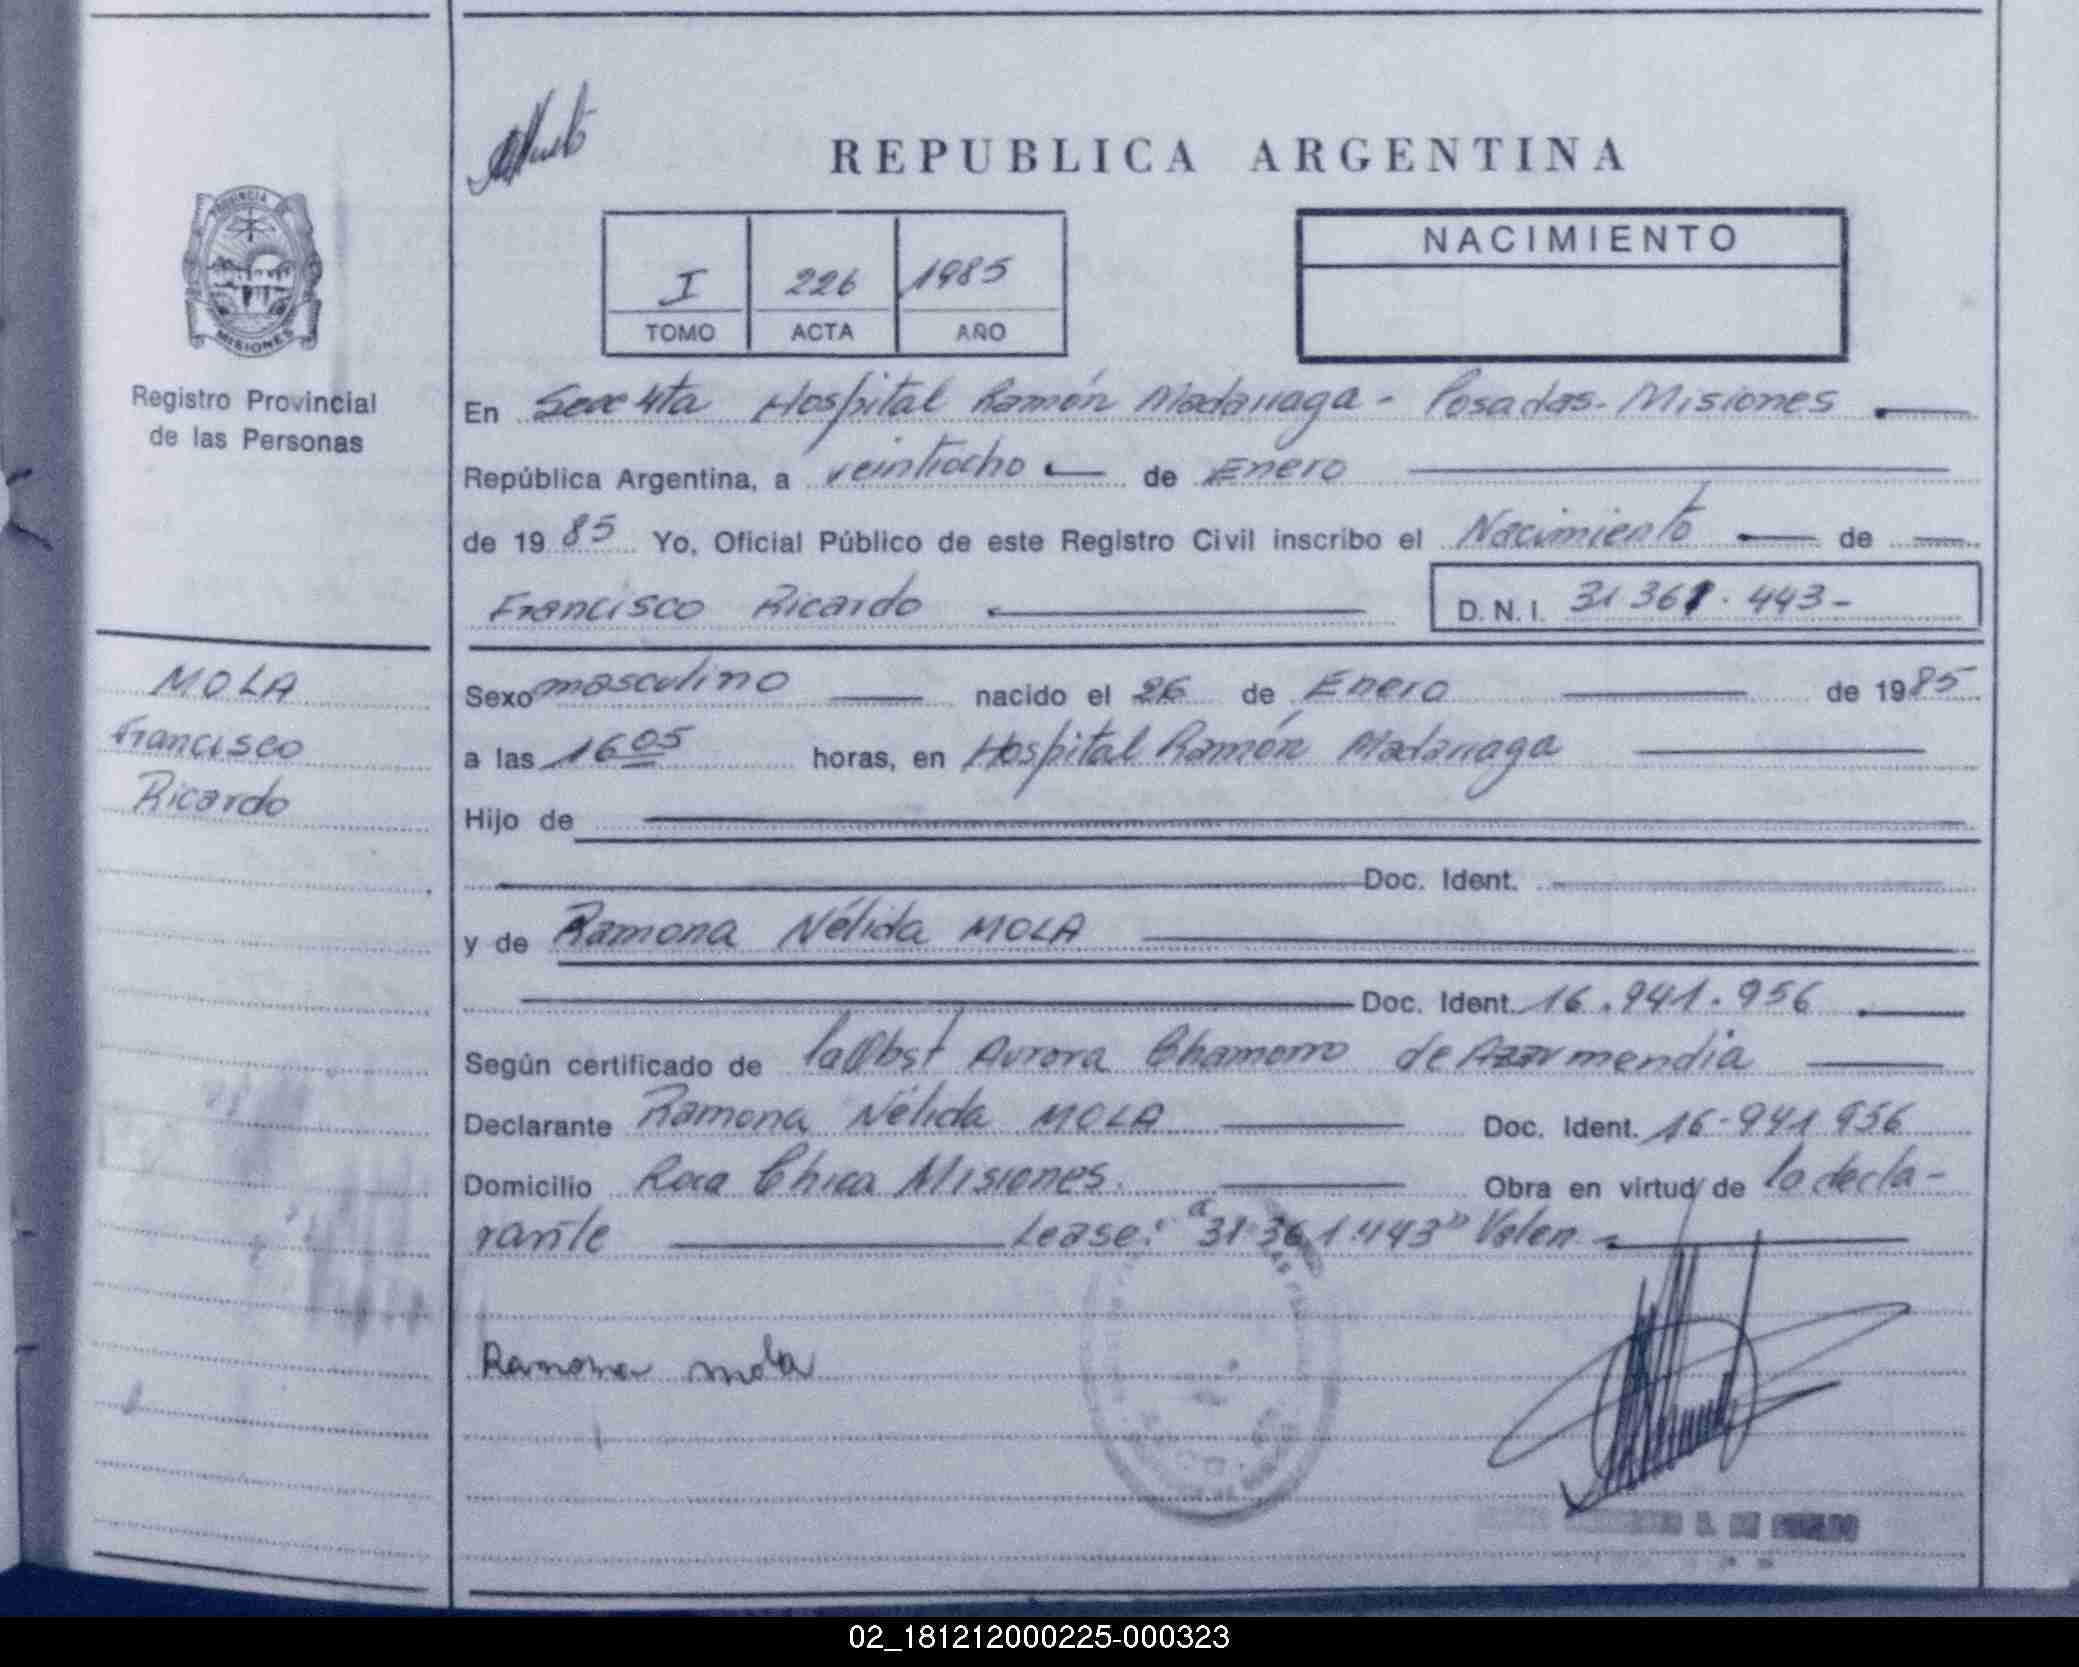 REPUBLICA ARGENTINA
PROVINCIA
MISIONES
Registro Provincial
de las Personas
I 226 1985
TOMO ACTA AÑO
NACIMIENTO
En Secc 4ta Hospital Ramón Madariaga - Posadas - Misiones
República Argentina, a veintiocho de Enero
de 1985 Yo, Oficial Público de este Registro Civil inscribo el Nacimiento de
Francisco Ricardo D.N.I. 31 361.443-
MOLA
Francisco
Ricardo
Sexo masculino nacido el 26 de Enero de 1985
a las 16 05 horas, en Hospital Ramón Madariaga
Hijo de
Doc. Ident.
y de Ramona Nélida MOLA
Doc. Ident. 16.941.956
Según certificado de la Obst Aurora Chamorro de Azarmendia
Declarante Ramona Nélida MOLA Doc. Ident. 16-941 956
Domicilio Roca Chica Misiones. Obra en virtud de la decla-
rante Lease: "31.361.443" Valen
Ramona mola
02_181212000225-000323